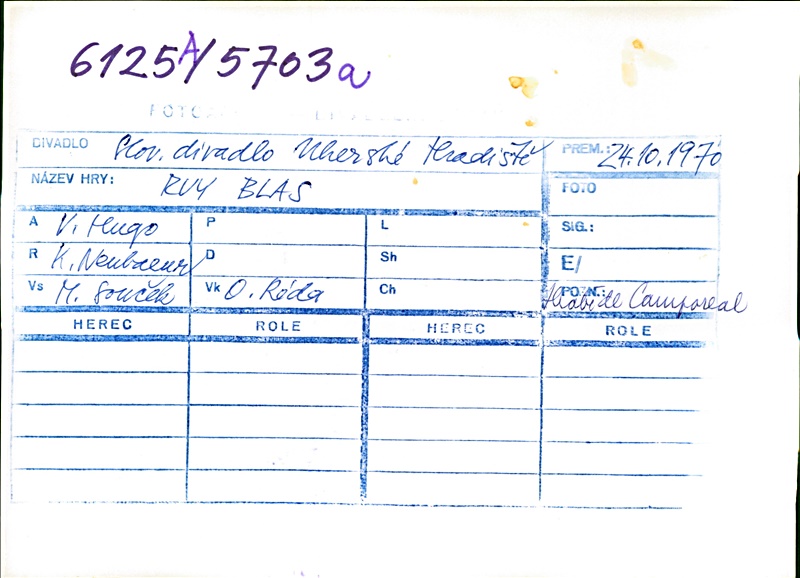 6125A/5703a
DIVADLO Slov. divadlo Uherské Hradiště PREM.: 24.10.1970
NÁZEV HRY: RUY BLAS FOTO
A V. Hugo P L SIG.:
R K. Neubauer D Sh E/
Vs M. Souček Vk O. Réda Ch POZN.: Hrabě de Camporeal
HEREC ROLE HEREC ROLE